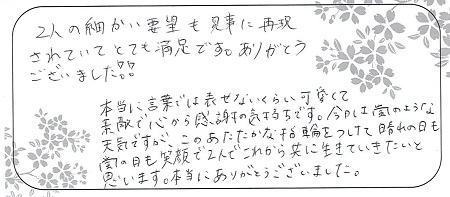 2人の細かい要望も見事に再現
されていてとても満足です。ありがとう
ございました!!
本当に言葉では表せないくらい可愛くて
素敵で心から感謝の気持ちです。今日は嵐のような
天気ですが、このあたたかな指輪をつけて晴れの日も
嵐の日も笑顔で2人でこれから共に生きていきたいと
思います。本当にありがとうございました。